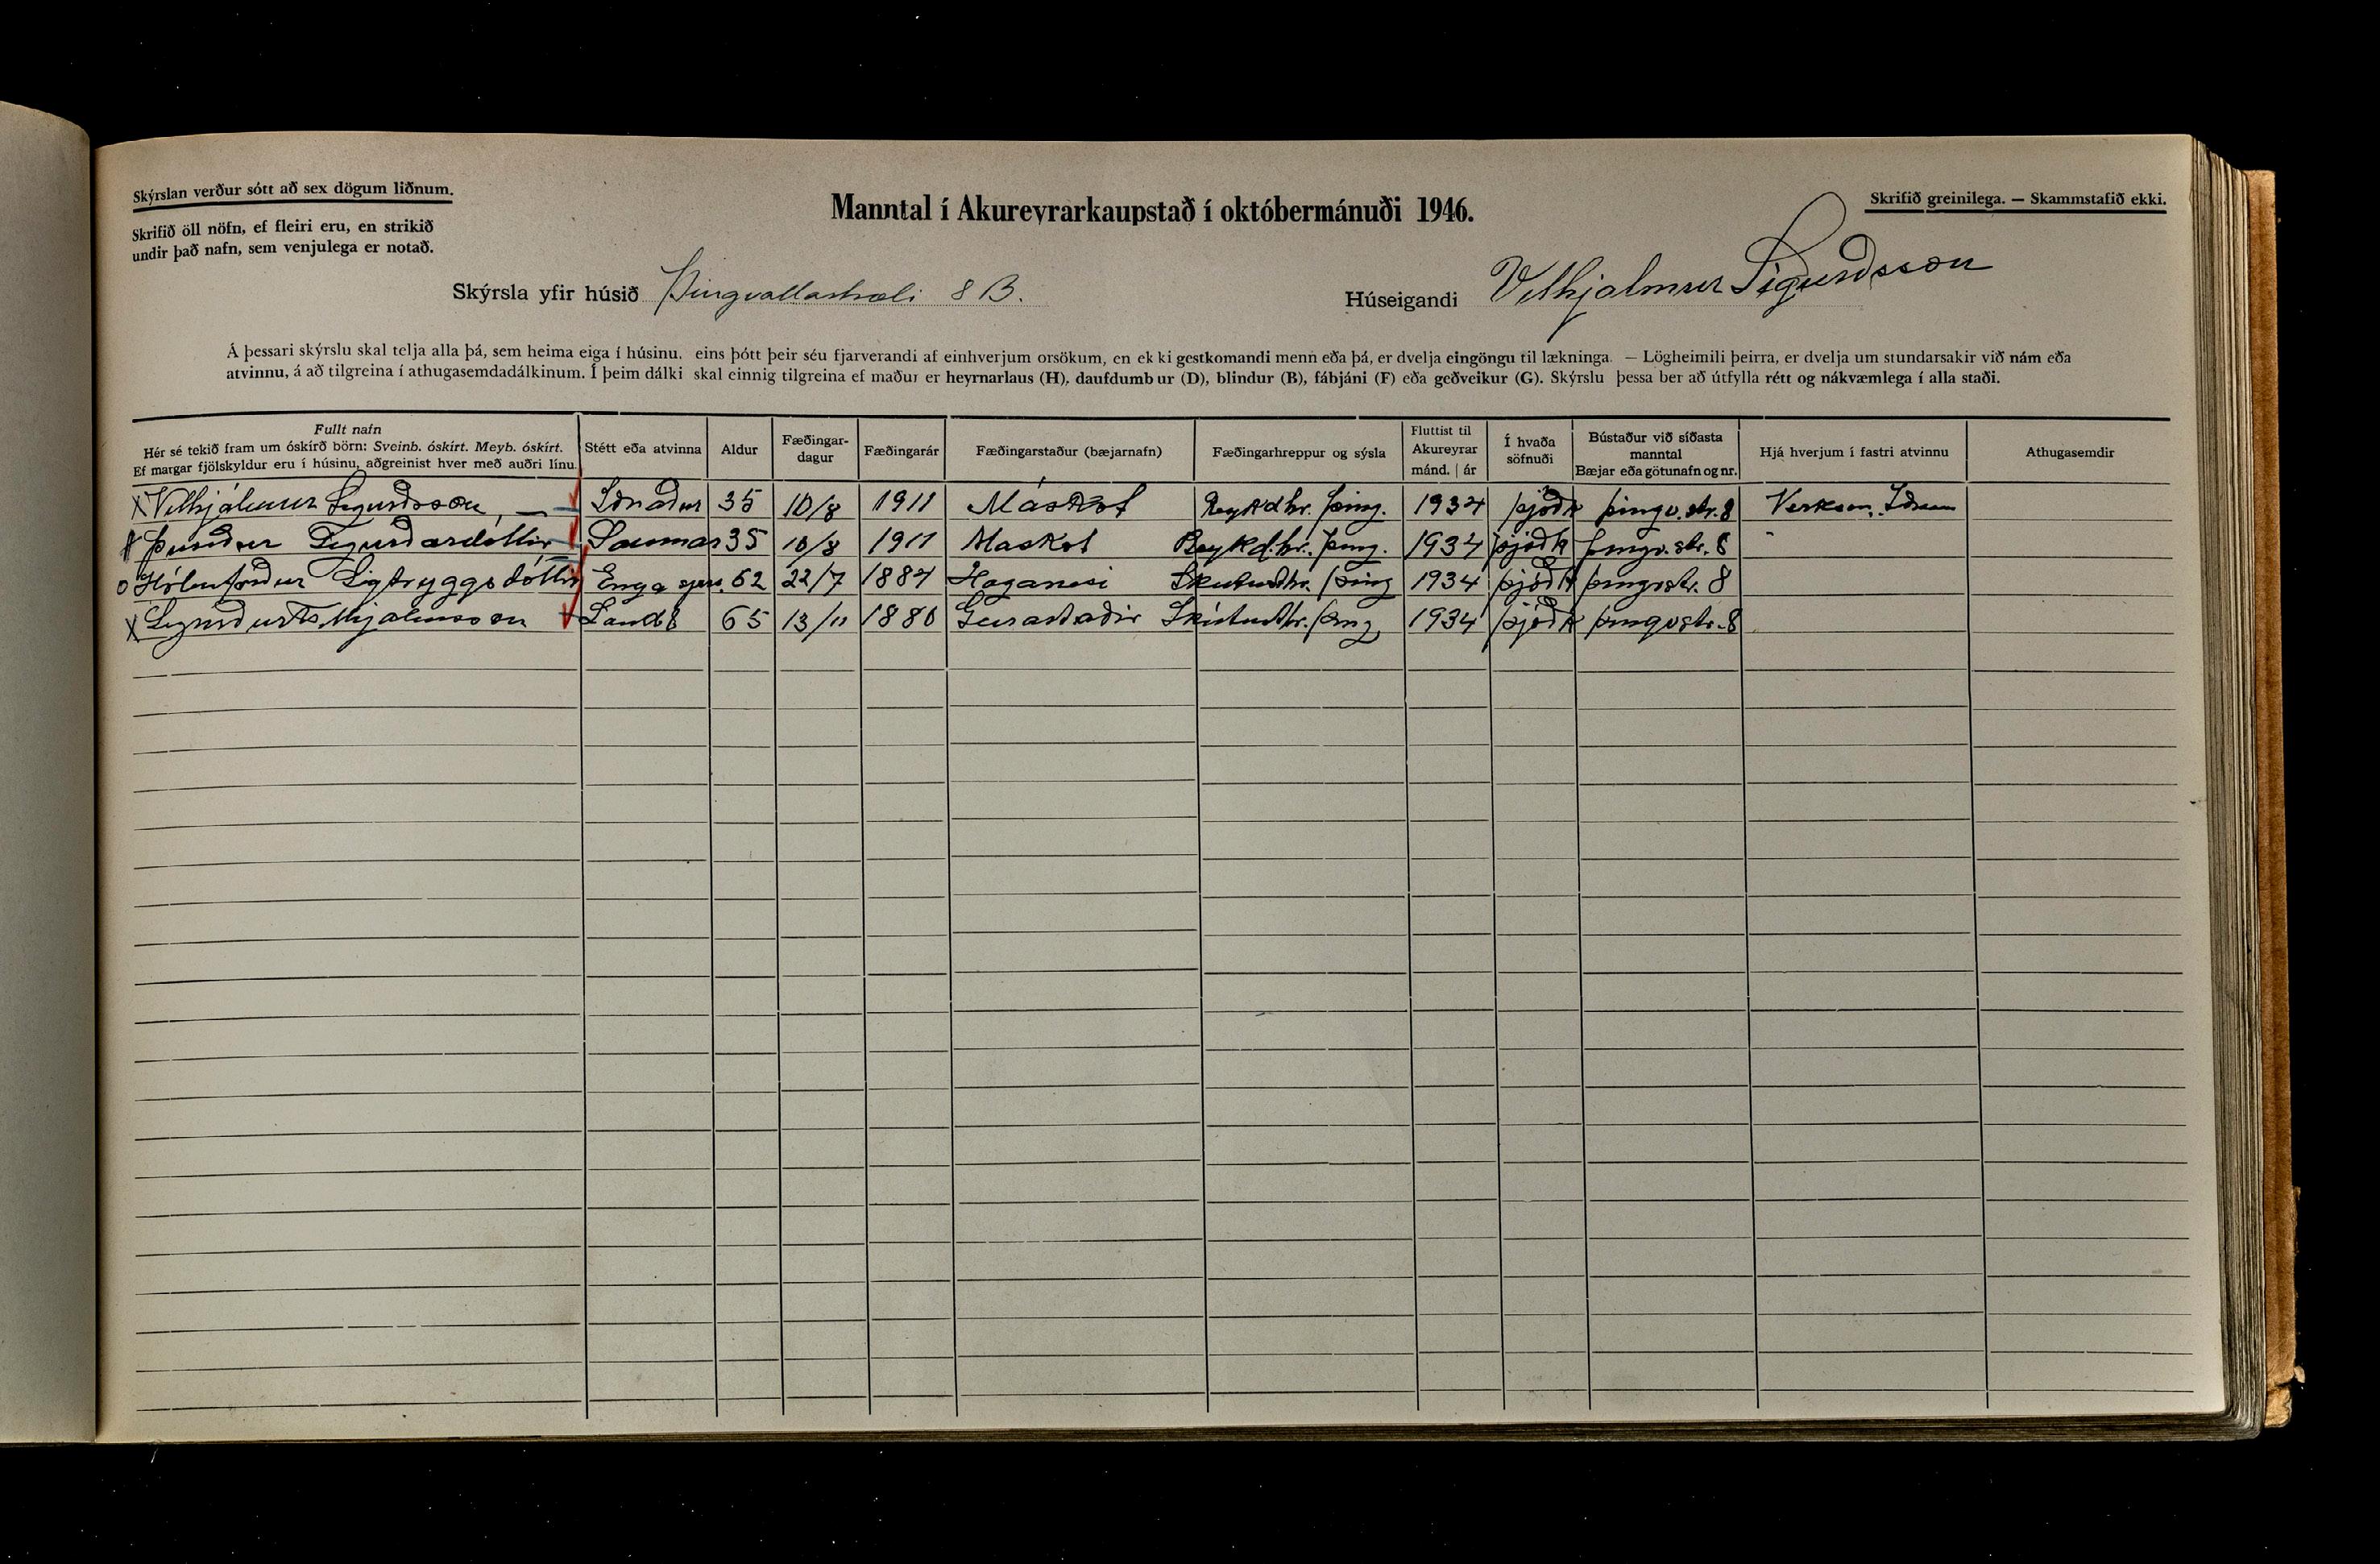 Skýrslan verður sótt að sex dögum liðnum.
Skrifið öll nöfn, ef fleiri eru, en strikið
undir það nafn, sem venjulega er notað.
Manntal í Akureyrarkaupstað í októbermánuði 1946.
Skrifið greinilega. — Skammstafið ekki.
Skýrsla yfir húsið Þingvallastræti 8 B.
Húseigandi Vilhjalmur Sigurdsson
Á þessari skýrslu skal telja alla þá, sem heima eiga í húsinu, eins þótt þeir séu fjarverandi af einhverjum orsökum, en ekki gestkomandi menn eða þá, er dvelja eingöngu til lækninga. — Lögheimili þeirra, er dvelja um stundarsakir við nám eða
atvinnu, á að tilgreina í athugasemdadálkinum. Í þeim dálki skal einnig tilgreina ef maður er heyrnarlaus (H), daufdumbur (D), blindur (B), fábjáni (F) eða geðveikur (G). Skýrslu þessa ber að útfylla rétt og nákvæmlega í alla staði.
Fullt nafn Hér sé tekið fram um óskírð börn: Sveinb. óskírt. Meyb. óskírt. Ef margar fjölskyldur eru í húsinu, aðgreinist hver með auðri línu. Stétt eða atvinna Aldur Fæðingar-dagur Fæðingarár Fæðingarstaður (bæjarnafn) Fæðingarhreppur og sýsla Fluttist til Akureyrar mánd. | ár Í hvaða söfnuði Bústaður við síðasta manntal Bæjar eða götunafn og nr. Hjá hverjum í fastri atvinnu Athugasemdir
X Vilhjálmur Sigurdsson, — Iðnadur 35 10/8 1911 Máskot Reykdhr. Þing. 1934 þjóðk þingv.str. 8 Verksm. Iðunn
Þuríður Sigurdardóttir Saumar 35 10/8 1911 Maskot Reykd.hr. Þing. 1934 þjóðk þingv.str. 8 "
o Hólmfríður Sigtryggsdóttir 62 22/7 1884 Haganesi Skutusthr. Þing 1934 þjóðk þingvstr. 8
X Sigurdur Vilhjalmsson 65 13/11 1880 Skútusthr. Þing 1934 þjóðk þingvstr. 8